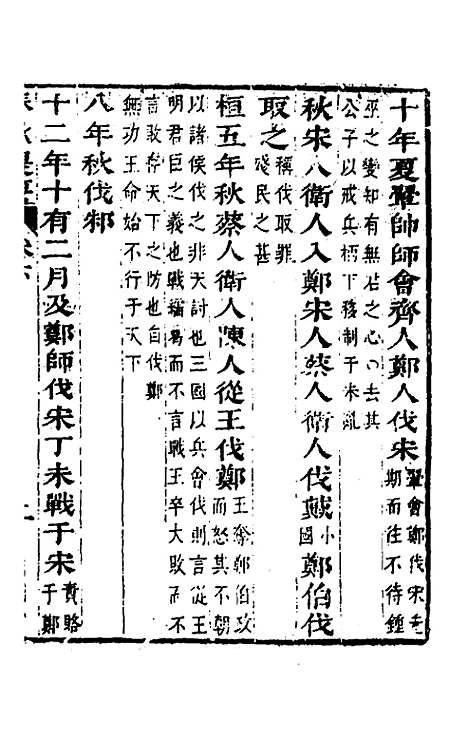 十年夏翬帥師會齊人鄭人伐宋翬會鄭伐宋先
期而往不待鍾
巫之變知有無君之心去其
公子以戒兵柄下移制于未亂
秋宋人衛人入鄭宋人蔡人衛人伐戴小國鄭伯伐
取之稱伐取罪
殘民之甚
桓五年秋蔡人衛人陳人從王伐鄭王奪鄭伯政
而怒其不朝
以諸侯伐之非天討也三國以兵會伐則言從王
明君臣之義也戰繻葛而不言戰王卒大敗而不
言敗存天下之防也自伐鄭
無功王命始不行于天下
八年秋伐邾
十二年十有二月及鄭師伐宋丁未戰于宋責賂
于鄭